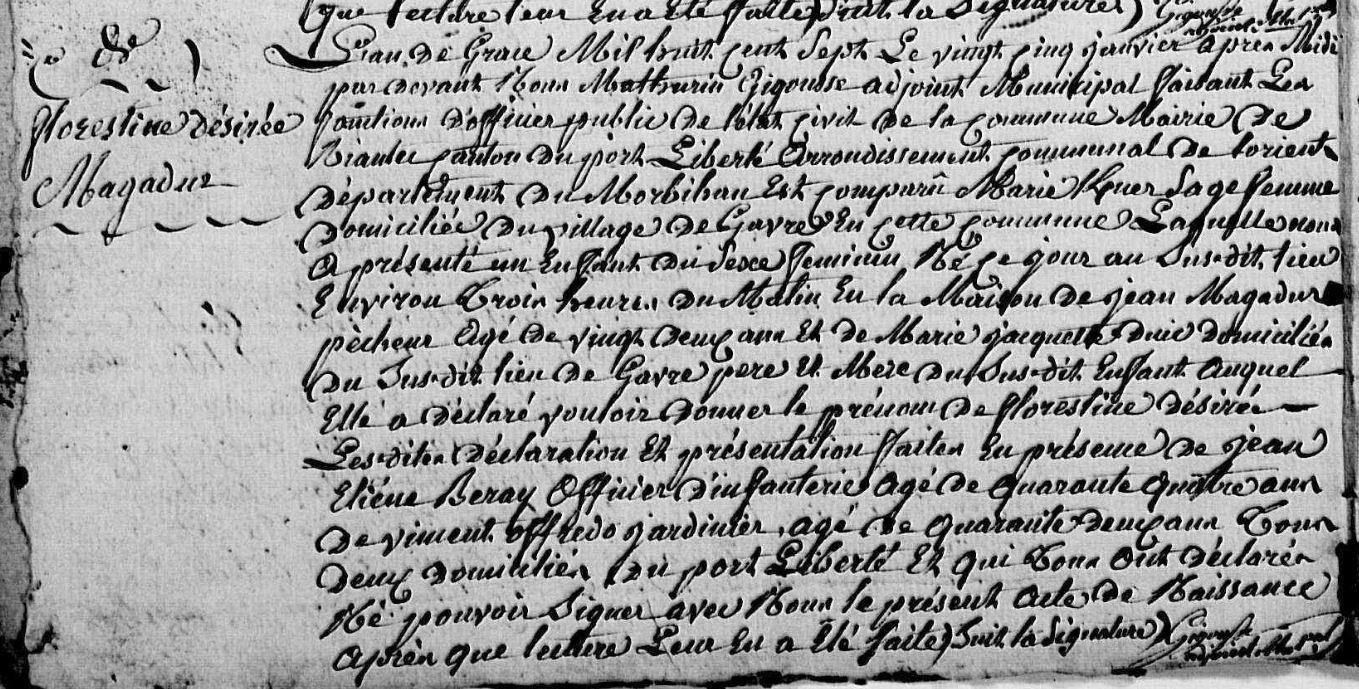 que lecture leur en a été faite) suit la signature)
de
florestine désirée
Magadur
L'an de Grace Mil huit cent Sept Le vingt cinq janvier après Midi
par devant Nous Mathurin Gigousse adjoint Municipal faisant Les
fonctions d'officier public de l'état civil de la commune Mairie de
Riantec canton du port Liberté Arrondissement communal de lorient
département du Morbihan Est comparû Marie Sage femme
domiciliée du village de Gavre En cette commune Laquelle nous
a présenté un Enfant du Sexe feminin Né ce jour au Sus-dit lieu
Environ trois heures du Matin En la Maison de jean Magadur
pêcheur agé de vingt deux ans Et de Marie jacquette domiciliés
du Sus-dit lieu de Gavre pere Et Mere du Sus-dit Enfant auquel
Elle a déclaré vouloir donner le prénom de florestine désirée
Les-dites déclaration Et présentation faites En présence de jean
Etiéne Beray Officier d'infanterie agé de quarante quatre ans
de vincent offredo jardinier agé de quarante-deux ans tous
deux domiciliés du port Liberté Et qui tous ont déclarés
Né pouvoir Signer avec Nous le présent acte de Naissance
après que lecture Leur En a Eté faite) Suit la Signature) Gigousse
adjoint Mpal